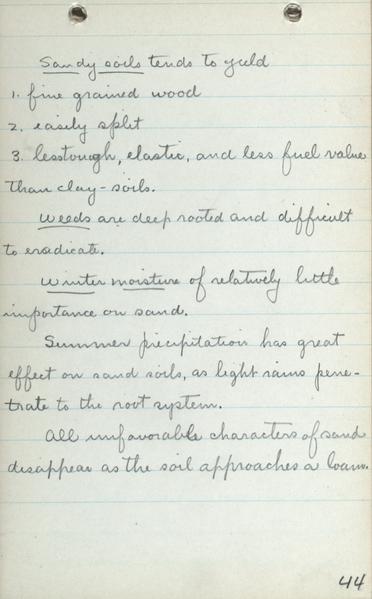 Sandy soils tends to yeild
1. fine grained wood
2. easily split
3. less tough, elastic, and less fuel value
than clay-soils.
Weeds are deep rooted and difficult
to eradicate.
Winter moisture of relatively little
importance on sand.
Summer precipitation has great
effect on sand soils, as light rains pene-
trate to the root system.
All unfavorable characters of sand
disappear as the soil approaches a loam.
44